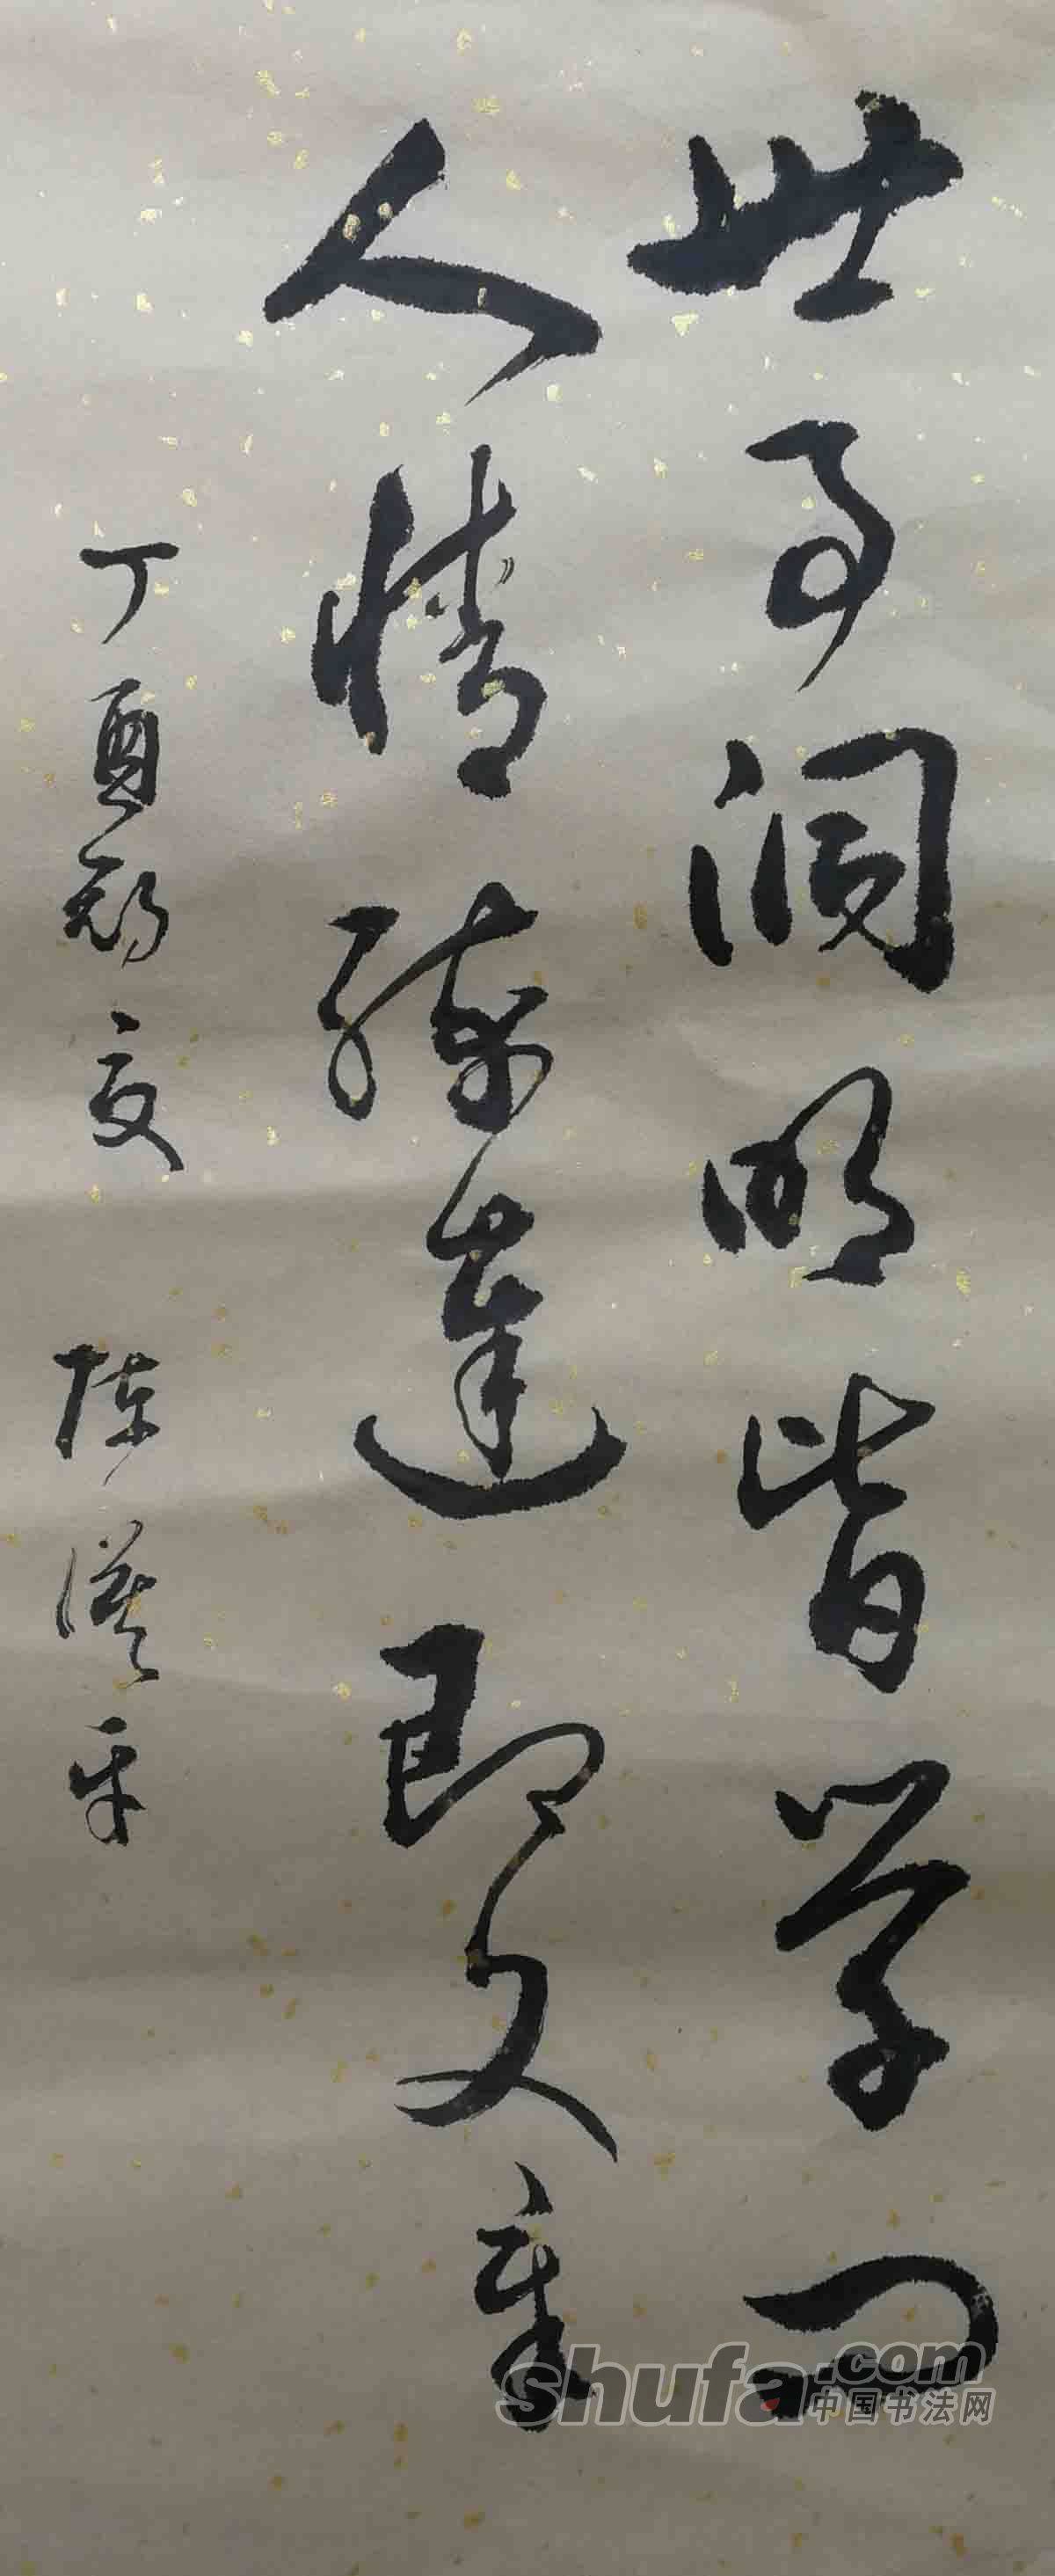 世事洞明皆学问
人情练達即文章
丁酉初夏 陈漢平
shufa.com
中国书法网